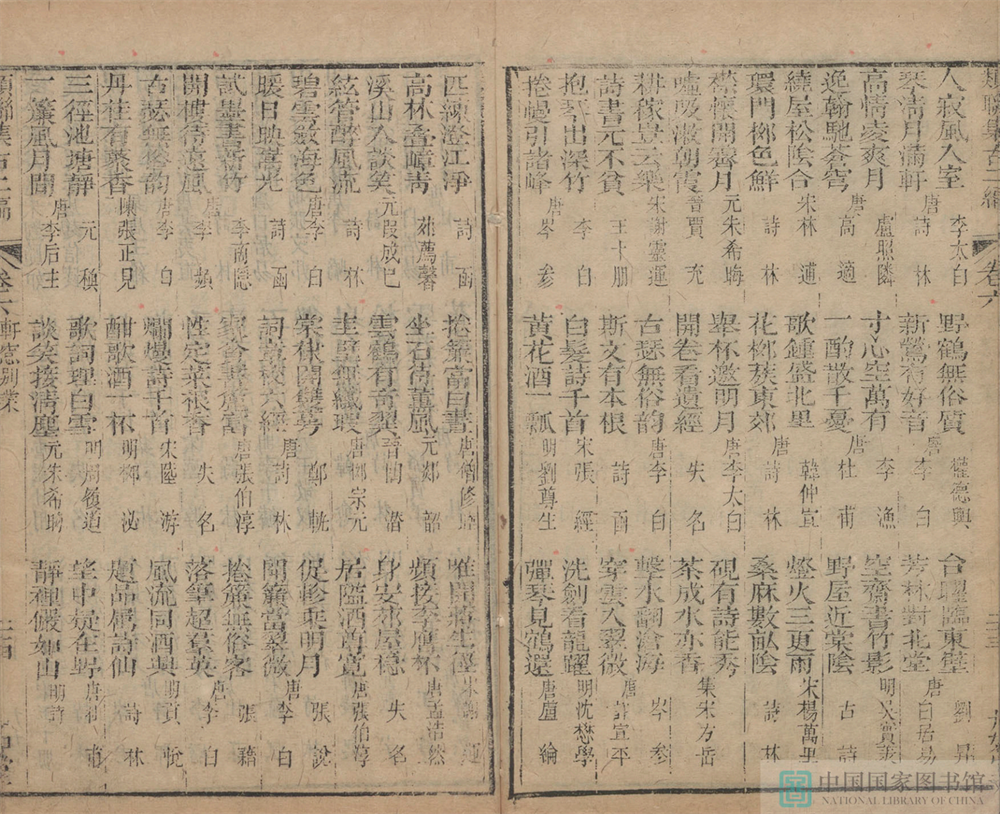 人寂風入室 李太白 野鶴無俗質 權德輿 合曜臨東壁 劉昇
琴清月滿軒 唐詩林 新鶯有好音 唐李白 芳林對北堂 唐白居易
高情凌爽月 盧照隣 寸心空萬有 李漁 空齋書竹影 明吴寳
逸翰馳蒼穹 唐高適 一酌散千憂 唐杜甫 野屋近棠陰 古詩
繞屋松陰合 宋林逋 歌鍾盛北里 韓仲宣 燈火三更雨 宋楊萬里
環門柳色鮮 詩林 花柳簇東郊 唐詩林 桑麻數畝陰 詩林
襟懷開霽月 元朱希晦 舉杯邀明月 唐李太白 硯有詩能秀
噓吸漱朝霞 晉賈充 開卷看遺經 失名 茶成水亦香 集宋方岳
耕稼豈云樂 宋謝靈運 古瑟無俗韵 唐李白 擊水翻滄海 岑參
詩書元不貧 王十朋 斯文有本根 詩酉 穿雲入翠微 唐許宣平
抱琴出深竹 李白 白髮詩千首 宋張經 洗劍看龍躍 明沈懋學
捲幔引諸峰 唐岑參 黃花酒一瓢 明劉尊生 彈琴見鶴還 唐盧綸
匹練澄江淨 詩函 捲簾當白晝 唐僧修睦 唯開蔣生徑
高林疊嶂靑 薩薦馨 坐石待薰風 元郯韶 頻接李膺杯 唐孟浩然
溪山入談笑 元段成已 雲鶴有奇翼 晉陶潛 身安茆屋穩 失名
絃管醉風流 詩林 圭璧無纖瑕 唐柳宗元 居隘酒尊寬 唐張伯淳
碧雲斂海色 唐李白 棠棣開雙萼 鄭䡖 促軫乘明月 張說
暖日映嵩光 詩函 詞章校六經 唐詩林 開簾當翠微 唐李
試墨書新竹 李商隱 唐張伯淳 捲簾無俗客 張籍
開樓待遠風 唐李頻 性定菜根香 失名 落筆超羣英 唐李白
古瑟無俗韵 唐李白 爛熳詩千首 宋陸游 風流同酒興 明貢悅
丹桂有藂香 陳張正見 酣歌酒一杯 明柳泌 題品屬詩仙 詩林
三徑池塘靜 元稹 歌詞理白雪 明周履道 望中疑在野 唐
一簾風月閒 唐李后主 談笑接淸塵 元朱希晦 靜裡儼如山 明詩
卷六 軒窓別業 二十四
中国国家图书馆
NATIONAL LIBRARY OF CHINA